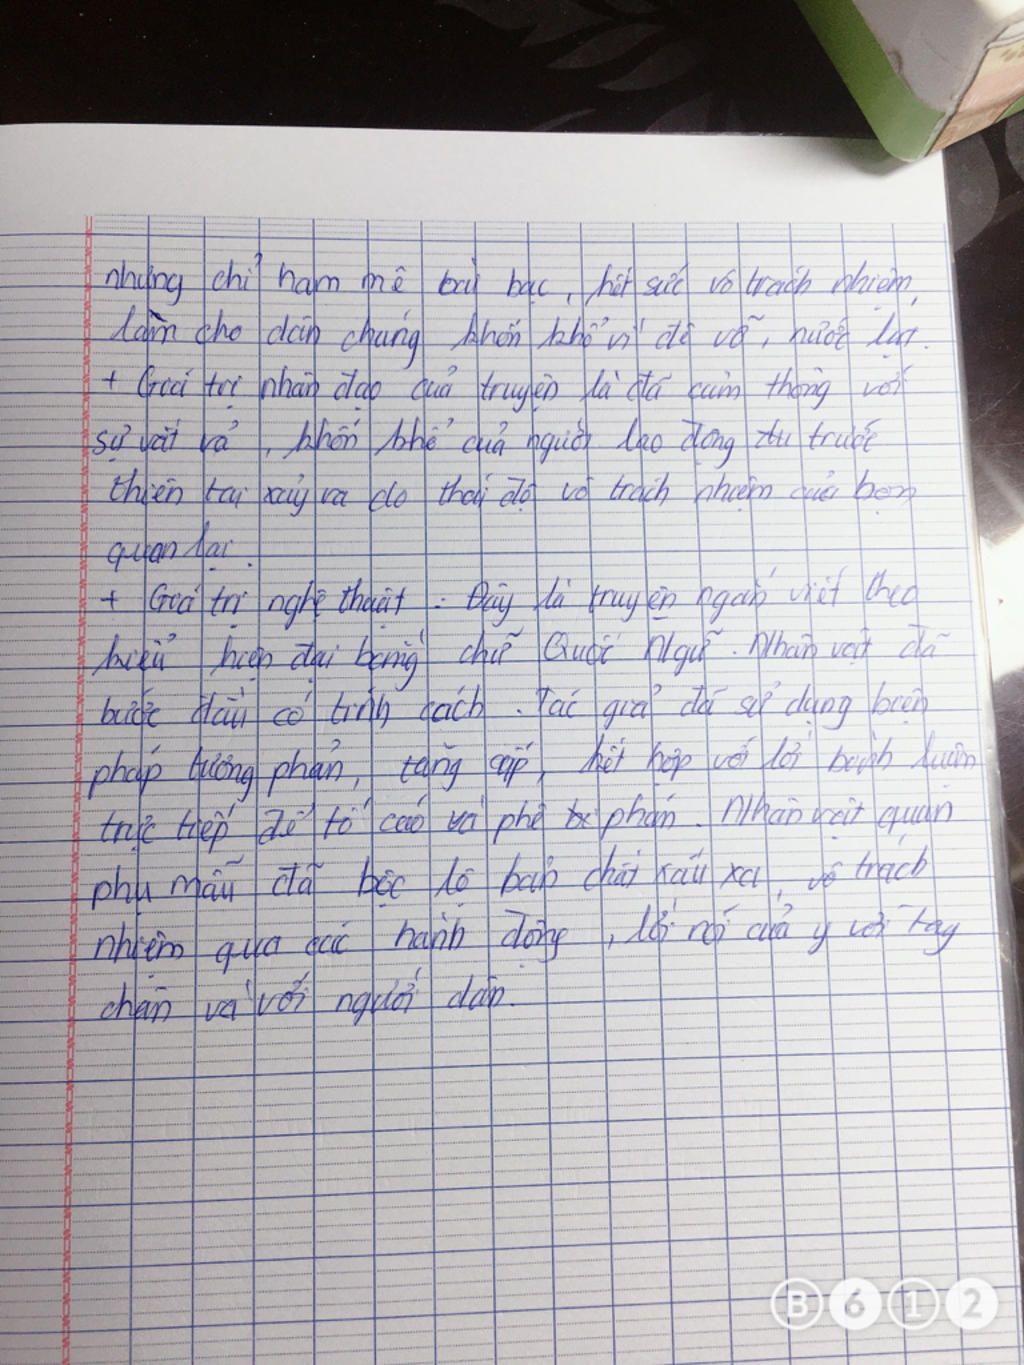 nhưng chỉ ham mê bài bạc, hết sức vô trách nhiệm,
làm cho dân chúng khốn khổ vì đê vỡ, nước lụt.
+ Giá trị nhân đạo của truyện là đã cảm thông với
sự vất vả, khốn khổ của người lao động trước
thiên tai xảy ra do thái độ vô trách nhiệm của bọn
quan lại.
+ Giá trị nghệ thuật : Đây là truyện ngắn viết theo
kiểu hiện đại bằng chữ Quốc Ngữ. Nhân vật đã
bước đầu có tính cách. Tác giả đã sử dụng biện
pháp tương phản, tăng cấp, kết hợp với lời bình luận
trực tiếp để tố cáo và phê phán. Nhân vật quan
phụ mẫu đã bộc lộ bản chất xấu xa, vô trách
nhiệm qua các hành động, lời nói của y với tay
chân và với người dân.
B612